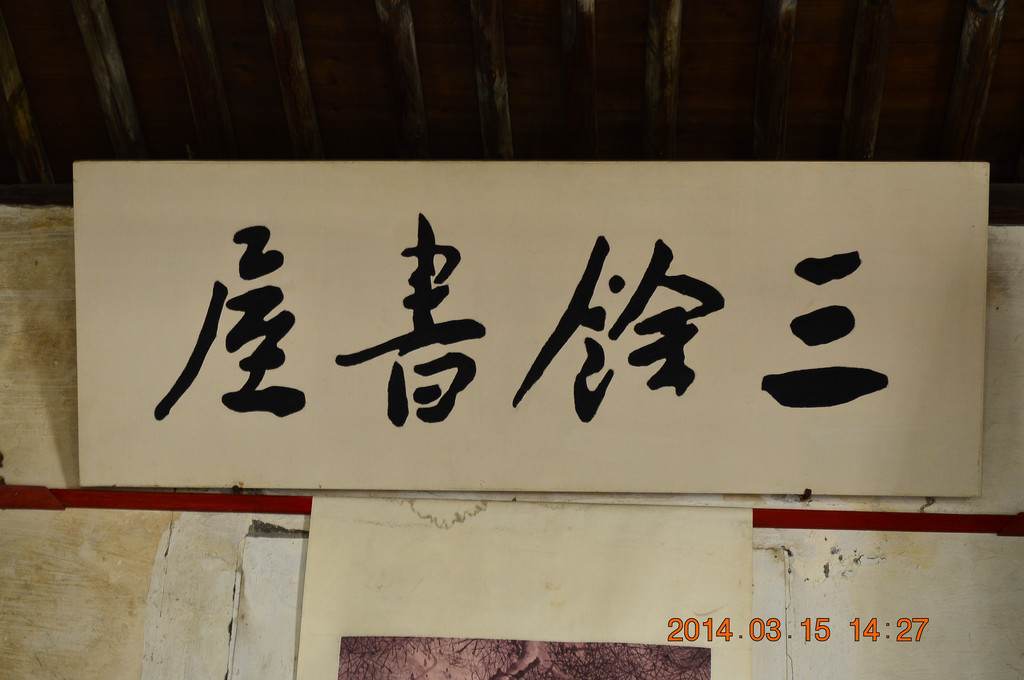 三餘書屋
2014.03.15 14:27